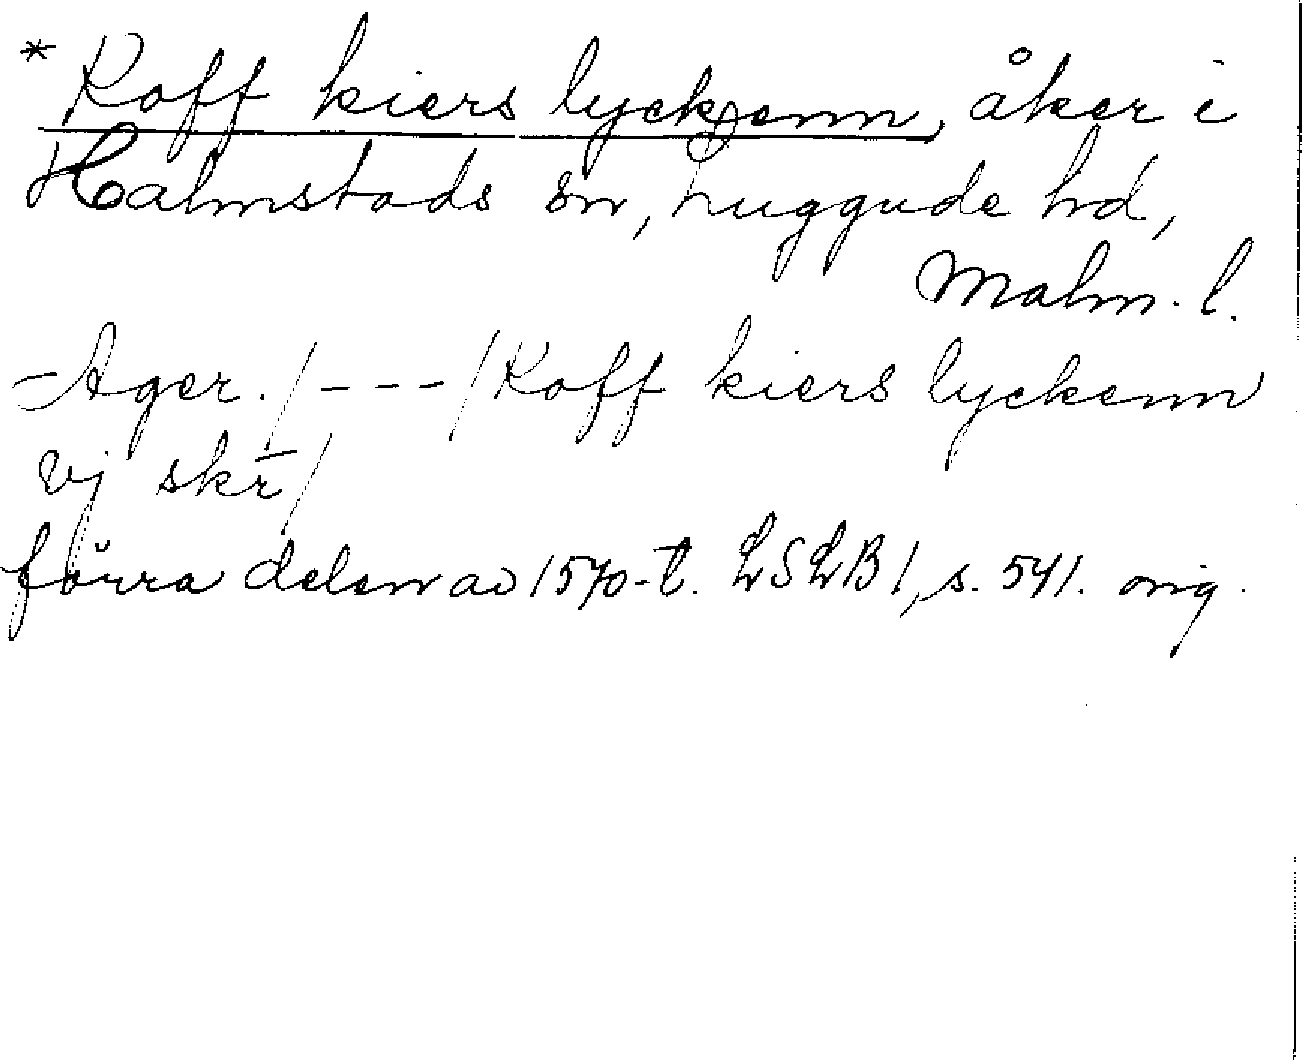 * Roff kiers lyckenn, åker i
Halmstads sn, Luggude hd,
Malm. l.
- Ager. /---/ Roff kiers lyckenn
vj skr̄/
förra delen av 1570-t. LSLB 1, s. 541. orig.